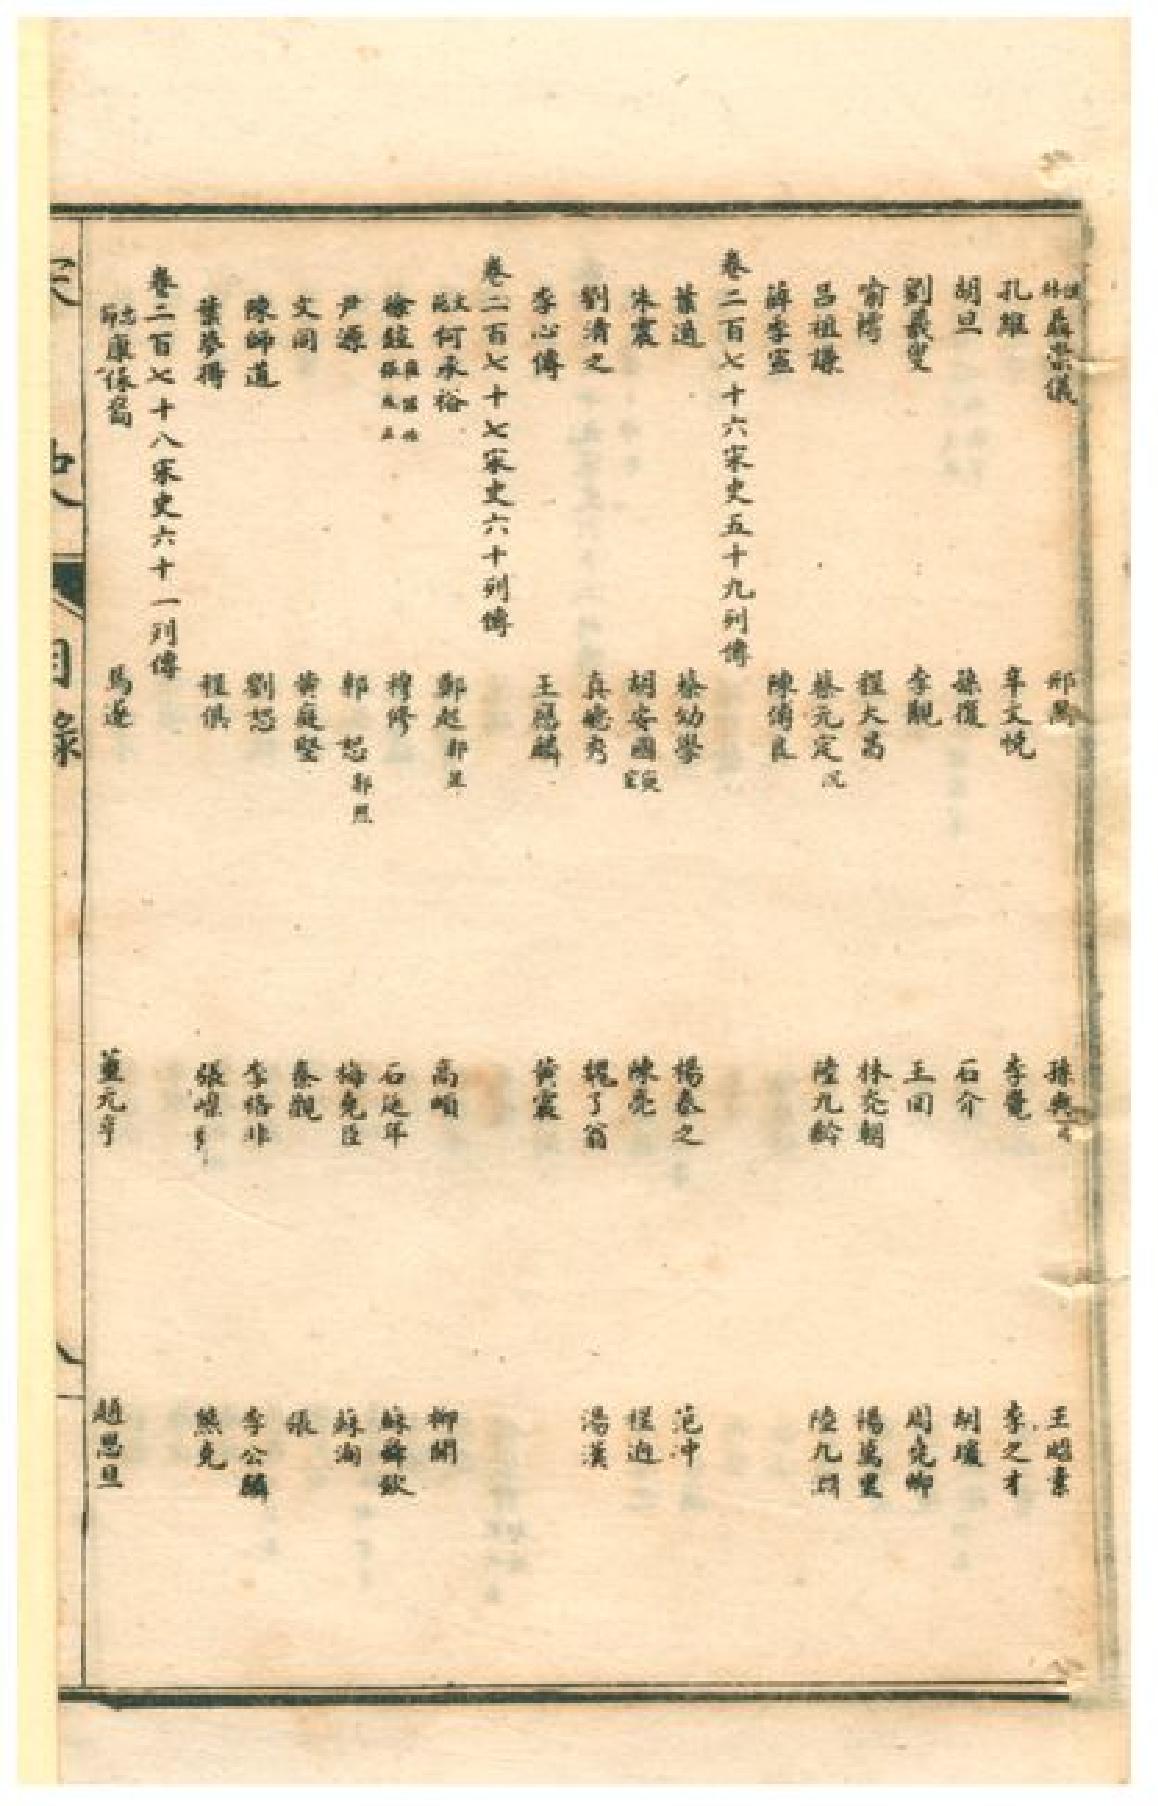 儒林 聶崇儀 邢昺 孫奭 王昭素
孔維 辛文悅 李覺 李之才
胡旦 孫復 石介 胡瑗
劉羲叟 李覯 王回 周堯卿
喻樗 程大昌 林光朝 楊萬里
呂祖謙 蔡元定 沉 陸九齡 陸九淵
薛季宣 陳傅良
卷二百七十六宋史五十九列傳
葉適 蔡幼學 楊泰之 范冲
朱震 胡安國 寅 陳亮 程迥
劉清之 真德秀 魏了翁 湯漢
李心傳 王應麟 黃震
卷二百七十七宋史六十列傳
文苑 何承裕 鄭起 郭昱 高頔 柳開
徐鉉 穆修 石延年 蘇舜欽
尹源 郭忠恕 梅堯臣 蘇洵
文同 黃庭堅 秦觀 張
陳師道 劉恕 李格非 李公麟
葉夢得 程俱 張嵲 熊克
卷二百七十八宋史六十一列傳
忠節 康保裔 馬遂 董元亨 趙思旦
宋史
目錄